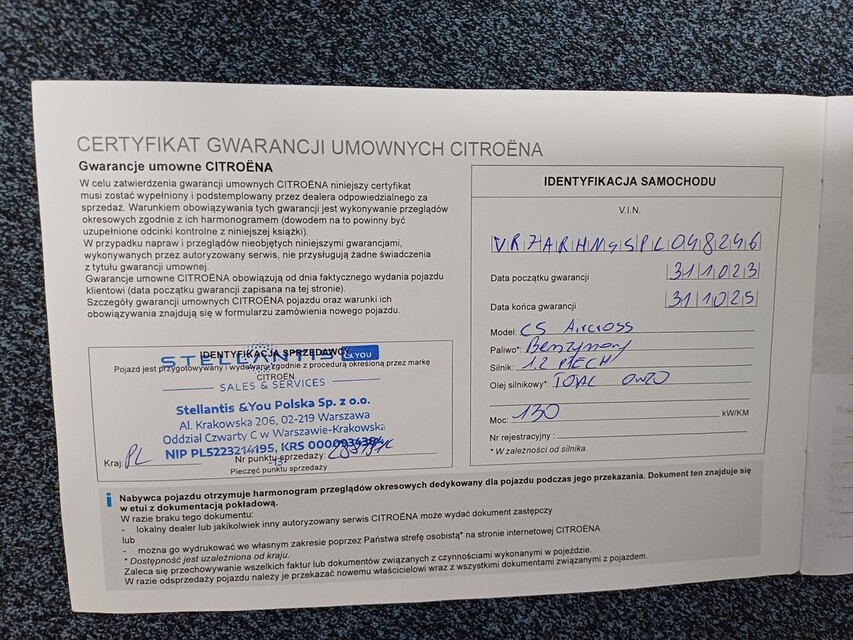 CERTYFIKAT GWARANCJI UMOWNYCH CITROËNA
Gwarancje umowne CITROËNA
W celu zatwierdzenia gwarancji umownych CITROËNA niniejszy certyfikat
musi zostać wypełniony i podstemplowany przez dealera odpowiedzialnego za
sprzedaż. Warunkiem obowiązywania tych gwarancji jest wykonywanie przeglądów
okresowych zgodnie z ich harmonogramem (dowodem na to powinny być
uzupełnione odcinki kontrolne z niniejszej książki).
W przypadku napraw i przeglądów nieobjętych niniejszymi gwarancjami,
wykonywanych przez autoryzowany serwis, nie przysługują żadne świadczenia
z tytułu gwarancji umownej.
Gwarancje umowne CITROËNA obowiązują od dnia faktycznego wydania pojazdu
klientowi (data początku gwarancji zapisana na tej stronie).
Szczegóły gwarancji umownych CITROËNA pojazdu oraz warunki ich
obowiązywania znajdują się w formularzu zamówienia nowego pojazdu.
IDENTYFIKACJA SPRZEDAWCY
STELLANTIS &YOU
Pojazd jest przygotowywany i wydawany zgodnie z procedurą określoną przez markę
CITROËN
SALES & SERVICES
Stellantis &You Polska Sp. z o.o.
Al. Krakowska 206, 02-219 Warszawa
Oddział Czwarty C w Warszawie-Krakowska
NIP PL5223214195, KRS 0000934384
Kraj: PL Nr punktu sprzedaży:
-13-
Pieczęć punktu sprzedaży
IDENTYFIKACJA SAMOCHODU
V.I.N.
VR7ARHNSSPL048246
Data początku gwarancji 311023
Data końca gwarancji 311025
Model: C5 Aircross
Paliwo*: Benzynowy
Silnik: 1.2 PTECH
Olej silnikowy*: TOTAL 0W20
Moc: 130 kW/KM
Nr rejestracyjny :
* W zależności od silnika.
i Nabywca pojazdu otrzymuje harmonogram przeglądów okresowych dedykowany dla pojazdu podczas jego przekazania. Dokument ten znajduje się
w etui z dokumentacją pokładową.
W razie braku tego dokumentu:
- lokalny dealer lub jakikolwiek inny autoryzowany serwis CITROËNA może wydać dokument zastępczy
lub
- można go wydrukować we własnym zakresie poprzez Państwa strefę osobistą* na stronie internetowej CITROËNA
* Dostępność jest uzależniona od kraju.
Zaleca się przechowywanie wszelkich faktur lub dokumentów związanych z czynnościami wykonanymi w pojeździe.
W razie odsprzedaży pojazdu należy je przekazać nowemu właścicielowi wraz z wszystkimi dokumentami związanymi z pojazdem.